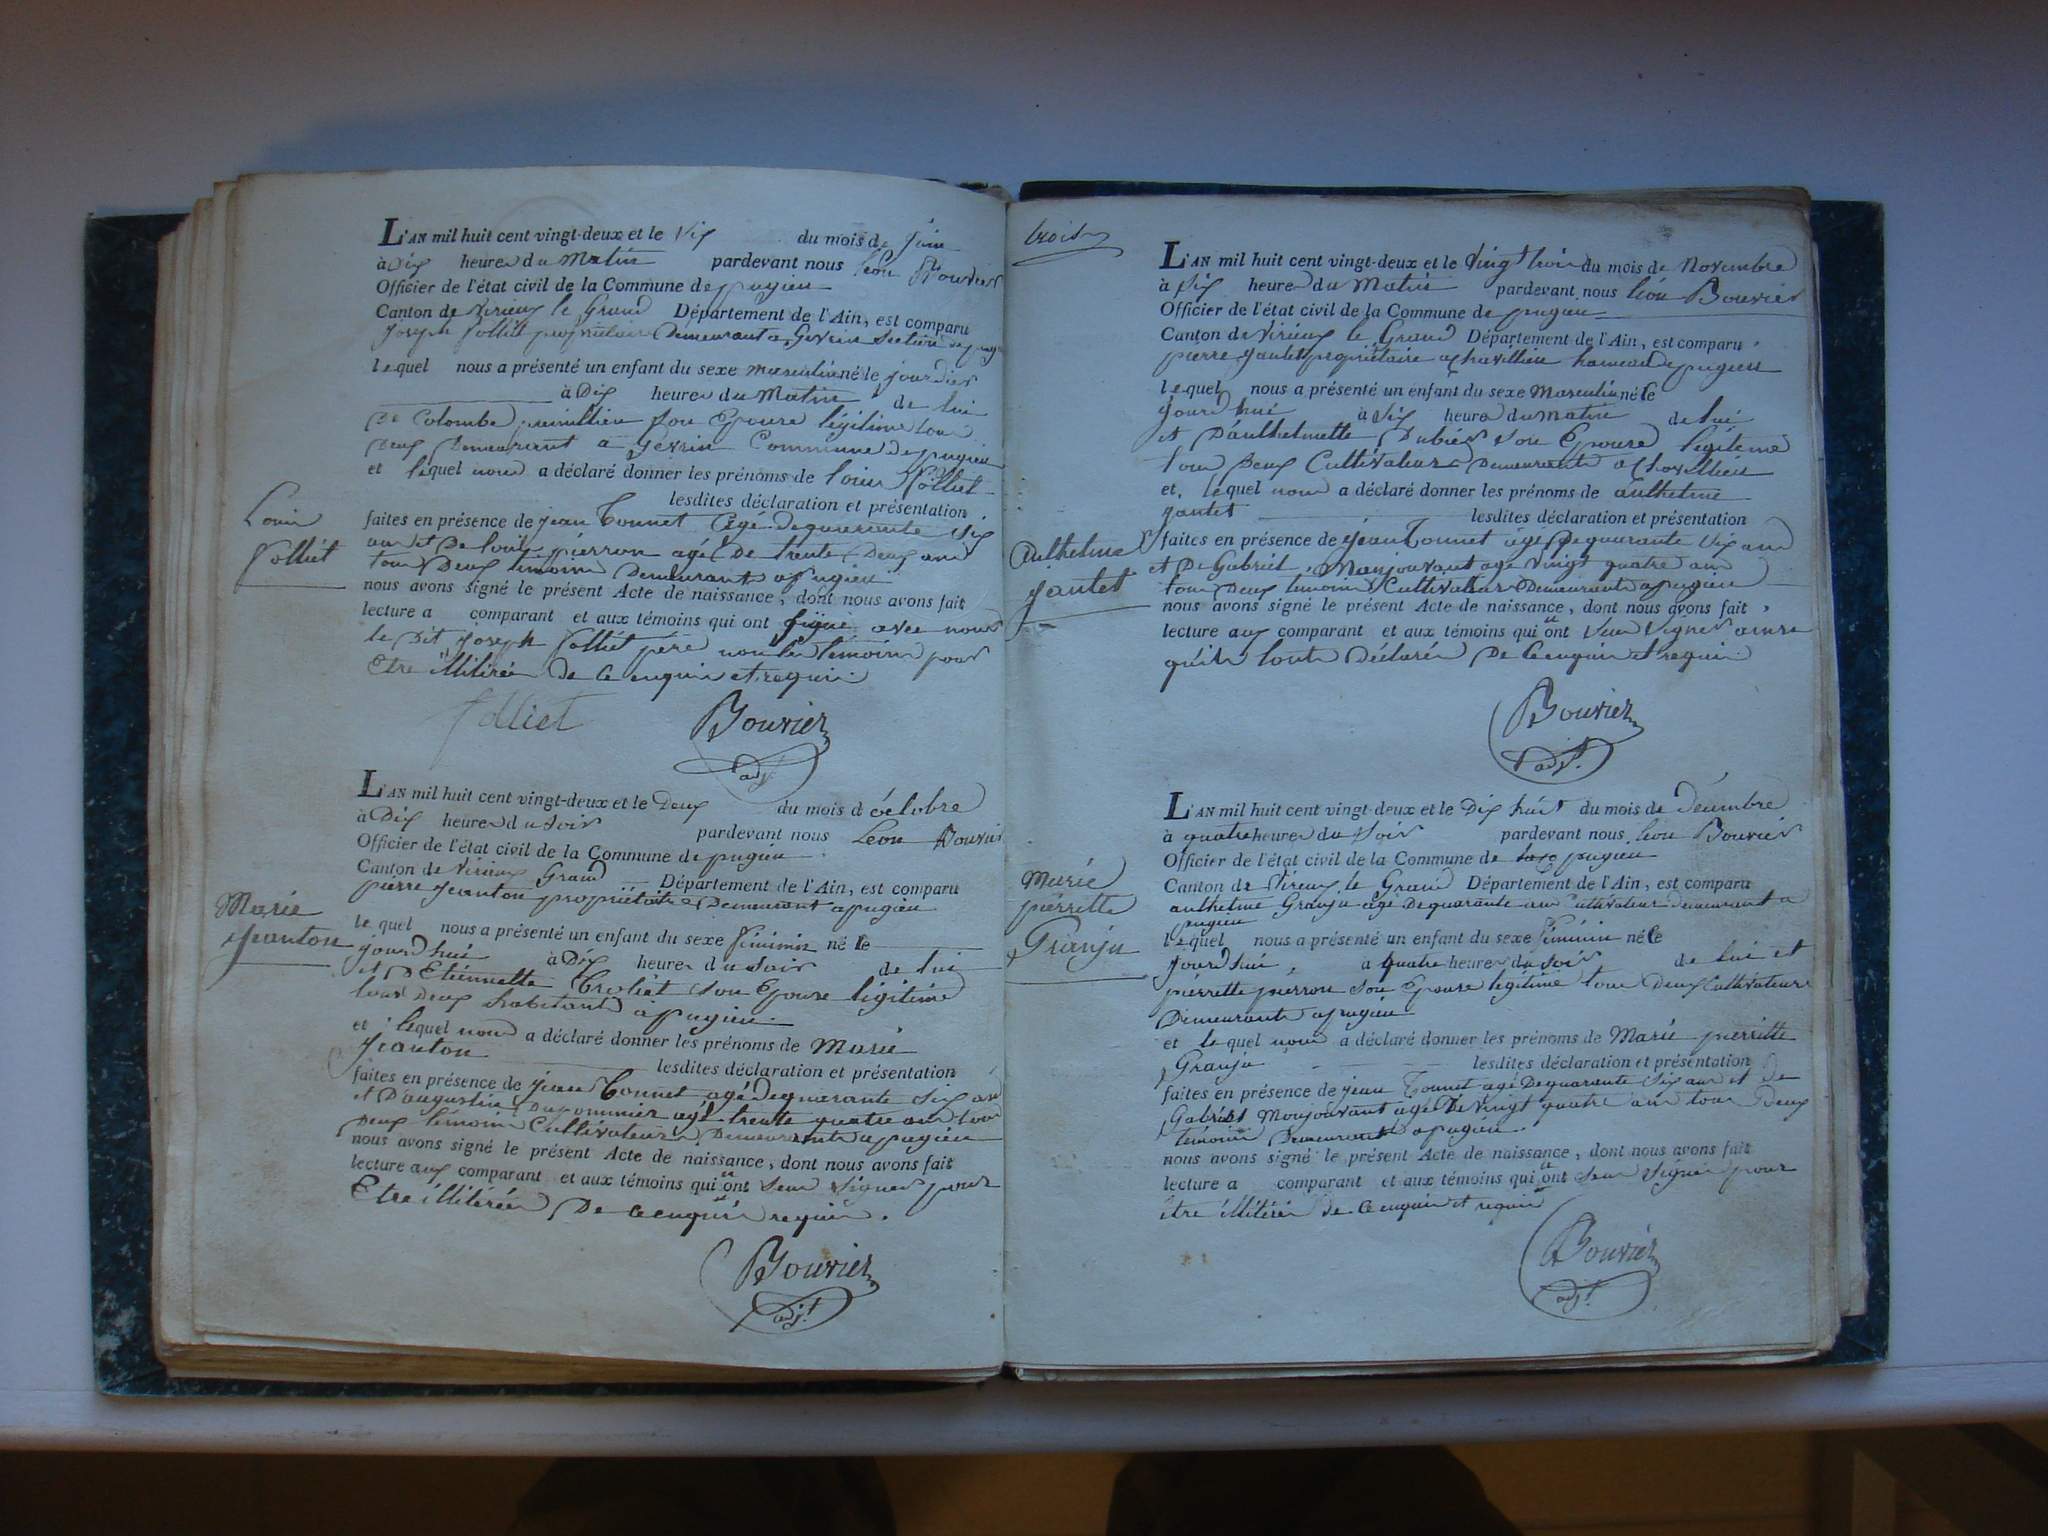 L'AN mil huit cent vingt-deux et le Six du mois de Juin
à Dix heures du Matin pardevant nous Léon Bouvier
Officier de l'état civil de la Commune de pugieu
Canton de Virieux le Grand Département de l'Ain, est comparu
Joseph Jolliet propriétaire Demeurant a
lequel nous a présenté un enfant du sexe masculin né le
à Dix heures du Matin de lui
De Colombe son Epouse légitime tous
Deux Demeurant a Commune de pugieu
et lequel nous a déclaré donner les prénoms de Louis Jolliet
lesdites déclaration et présentation
Louis
Jolliet
faites en présence de jean Tonnet agé de quarante Six
ans et De Louis pierron agé De trente Deux ans
tous Deux témoins Demeurants a pugieu
nous avons signé le présent Acte de naissance, dont nous avons fait
lecture a comparant et aux témoins qui ont signé avec nous
le Dit joseph Jolliet père non les témoins pour
Etre illitérés De Ce enquis et requis.
Jolliet
Bouvier
adjt.
L'AN mil huit cent vingt-deux et le Deux du mois d'octobre
à Dix heures du Soir pardevant nous Léon Bouvier
Officier de l'état civil de la Commune de pugieu
Canton de Virieux Grand Département de l'Ain, est comparu
pierre jeanton propriétaire Demeurant a pugieu
Marie
jeanton
lequel nous a présenté un enfant du sexe féminin né le
jourd'hui à Dix heures du Soir de lui
et D'Etiennette son Epouse légitime
tous Deux habitants a pugieu.
et lequel nous a déclaré donner les prénoms de Marie
jeanton lesdites déclaration et présentation
faites en présence de jean Tonnet agé de quarante Six ans
et D'augustin Dupommier agé trente quatre ans tous
Deux témoins Cultivateurs Demeurants a pugieu
nous avons signé le présent Acte de naissance, dont nous avons fait
lecture aux comparant et aux témoins qui n'ont Seu Signer pour
Etre illitérés De Ce enquis requis.
Bouvier
adjt.
trois
L'AN mil huit cent vingt-deux et le Vingt trois du mois de Novembre
à Six heures du Matin pardevant nous Léon Bouvier
Officier de l'état civil de la Commune de pugieu
Canton de Virieux le Grand Département de l'Ain, est comparu
pierre jantet propriétaire a Chavillieu hameau de pugieu
lequel nous a présenté un enfant du sexe Masculin né le
jourd'hui à Six heures du matin de lui
et D'anthelmette Dubier son Epouse légitime
tous Deux Cultivateurs Demeurants a Chavillieu
et lequel nous a déclaré donner les prénoms de anthelme
jantet lesdites déclaration et présentation
Anthelme
jantet
faites en présence de jean Tonnet agé De quarante Six ans
et De Gabriel Monjouvant agé Vingt quatre ans
tous Deux témoins Cultivateurs Demeurants a pugieu
nous avons signé le présent Acte de naissance, dont nous avons fait
lecture aux comparant et aux témoins qui n'ont Seu Signer ainsi
qu'ils l'ont Déclaré De Ce enquis et requis.
Bouvier
adjt.
L'AN mil huit cent vingt-deux et le Dix huit du mois de Décembre
à quatre heures du Soir pardevant nous Léon Bouvier
Officier de l'état civil de la Commune de pugieu
Canton de Virieux le Grand Département de l'Ain, est comparu
anthelme Granju agé De quarante ans Cultivateur demeurant a
pugieu
Marie
pierrette
Granju
lequel nous a présenté un enfant du sexe féminin né le
jourd'hui à quatre heures du Soir de lui et
pierrette pierron son Epouse légitime tous Deux Cultivateurs
Demeurants a pugieu
et lequel nous a déclaré donner les prénoms de Marie pierrette
Granju lesdites déclaration et présentation
faites en présence de jean Tonnet agé De quarante Six ans et de
Gabriel Monjouvant agé De vingt quatre ans tous Deux
témoins Demeurants a pugieu.
nous avons signé le présent Acte de naissance, dont nous avons fait
lecture a comparant et aux témoins qui n'ont Seu Signer pour
être illitérés De Ce enquis et requis
Bouvier
adjt.